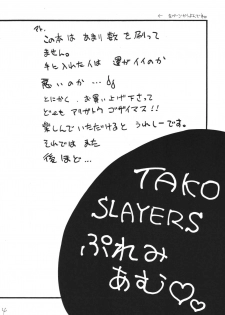 この本は あまり数を刷って
ません。
手に入れた人は 運がイイのか
悪いのか…
とにかく、お買い上げ下さって
どーもアリガトウゴザイマス!!
楽しんでいただけると うれしーです。
それでは また
後ほど…
TAKO
SLAYERS
ぷれみ
あむ♡♡